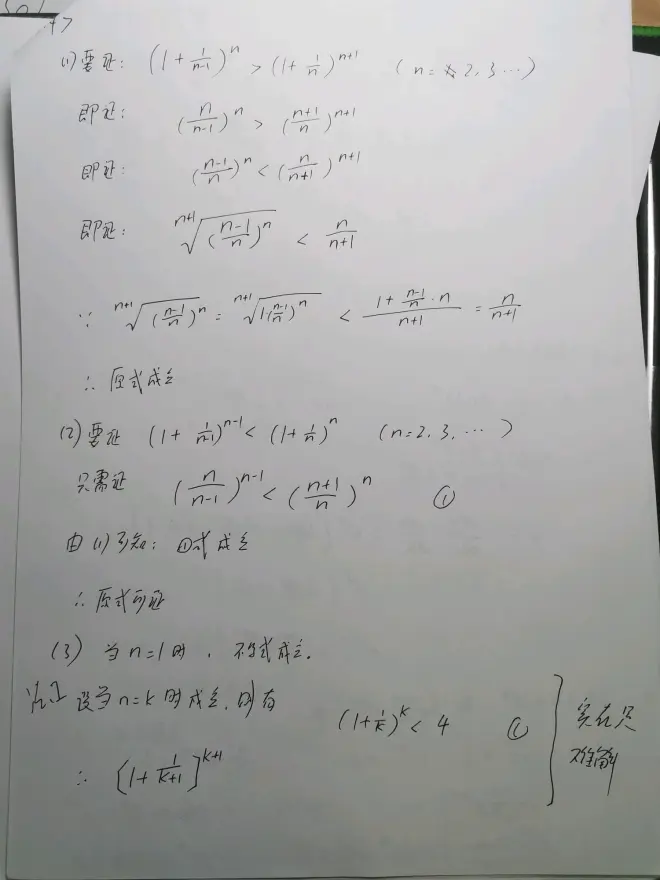 (1) 要证: (1 + 1/(n-1))^n > (1 + 1/n)^(n+1) (n = 2, 3 ⋯)
即证: (n/(n-1))^n > ((n+1)/n)^(n+1)
即证: ((n-1)/n)^n < (n/(n+1))^(n+1)
即证: ⁿ⁺¹√(((n-1)/n)^n) < n/(n+1)
∵ ⁿ⁺¹√(((n-1)/n)^n) = ⁿ⁺¹√(1·((n-1)/n)^n) < (1 + (n-1)/n · n)/(n+1) = n/(n+1)
∴ 原式成立
(2) 要证 (1 + 1/(n-1))^(n-1) < (1 + 1/n)^n (n = 2, 3, ⋯)
只需证 (n/(n-1))^(n-1) < ((n+1)/n)^n ①
由(1)可知: ①式成立
∴ 原式可证
(3) 当 n=1 时, 不等式成立.
设当 n=k 时成立, 则有
(1+1/k)^k < 4 ①
∴ [1 + 1/(k+1)]^(k+1)
实在只
难解